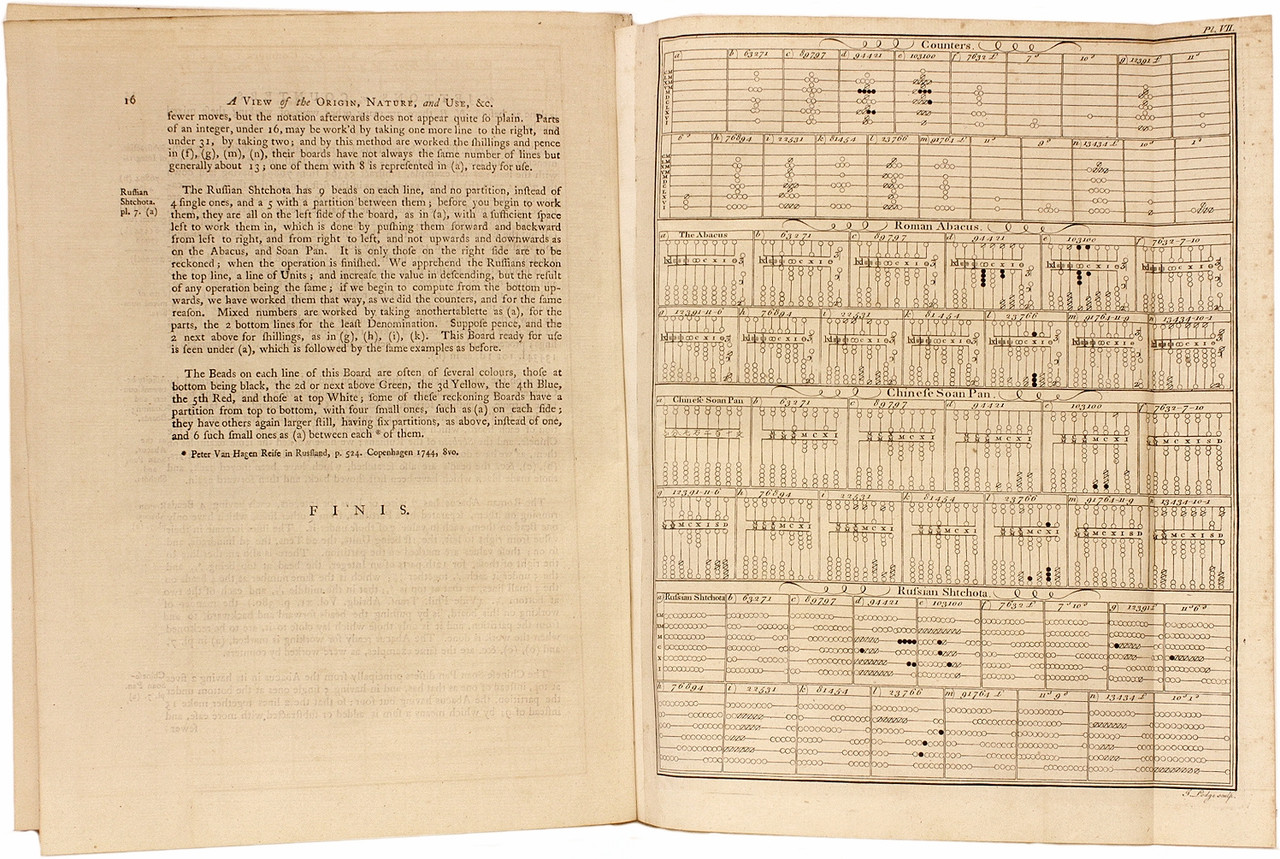 16
A VIEW of the ORIGIN, NATURE, and USE, &c.
fewer moves, but the notation afterwards does not appear quite ſo plain. Parts
of an integer, under 16, may be work'd by taking one more line to the right, and
under 31, by taking two; and by this method are worked the ſhillings and pence
in (f), (g), (m), (n), their boards have not always the ſame number of lines but
generally about 13; one of them with 8 is repreſented in (a), ready for uſe.
Ruſſian
Shtchota.
pl. 7. (a)
The Ruſſian Shtchota has 9 beads on each line, and no partition, inſtead of
4 ſingle ones, and a 5 with a partition between them; before you begin to work
them, they are all on the left ſide of the board, as in (a), with a ſufficient ſpace
left to work them in, which is done by puſhing them forward and backward
from left to right, and from right to left, and not upwards and downwards as
on the Abacus, and Soan Pan. It is only thoſe on the right ſide are to be
reckoned; when the operation is finiſhed. We apprehend the Ruſſians reckon
the top line, a line of Units; and increaſe the value in deſcending, but the reſult
of any operation being the ſame; if we begin to compute from the bottom up-
wards, we have worked them that way, as we did the counters, and for the ſame
reaſon. Mixed numbers are worked by taking anothertablette as (a), for the
parts, the 2 bottom lines for the leaſt Denomination. Suppoſe pence, and the
2 next above for ſhillings, as in (g), (h), (i), (k). This Board ready for uſe
is ſeen under (a), which is followed by the ſame examples as before.
The Beads on each line of this Board are often of ſeveral colours, thoſe at
bottom being black, the 2d or next above Green, the 3d Yellow, the 4th Blue,
the 5th Red, and thoſe at top White; ſome of theſe reckoning Boards have a
partition from top to bottom, with four ſmall ones, ſuch as (a) on each ſide;
they have others again larger ſtill, having ſix partitions, as above, inſtead of one,
and 6 ſuch ſmall ones as (a) between each * of them.
* Peter Van Hagen Reiſe in Ruſſland, p. 524. Copenhagen 1744, 8vo.
FINIS.
Pl. VII.
Counters.
a b 63271 c 89797 d 94421 e 103100 f 7632 £ 7 s 10 d g 12391 £ 11 s
6 d h 76894 i 22531 k 81454 l 23766 m 91764 £ 11 s 9 d n 13434 £ 10 s 1 d
Roman Abacus.
a The Abacus b 63271 c 89797 d 94421 e 103100 f 7632-7-10
g 12391-11-6 h 76894 i 22531 k 81454 l 23766 m 91764-11-9 n 13434-10-1
Chineſe Soan Pan.
a Chineſe Soan Pan b 63271 c 89797 d 94421 e 103100 f 7632-7-10
g 12391-11-6 h 76894 i 22531 k 81454 l 23766 m 91764-11-9 n 13434-10-1
Ruſſian Shtchota.
a Ruſſian Shtchota b 63271 c 89797 d 94421 e 103100 f 7632 £ 7 s 10 d g 12391 £ 11 s 6 d
h 76894 i 22531 k 81454 l 23766 m 91764 £ 11 s 9 d n 13434 £ 10 s 1 d